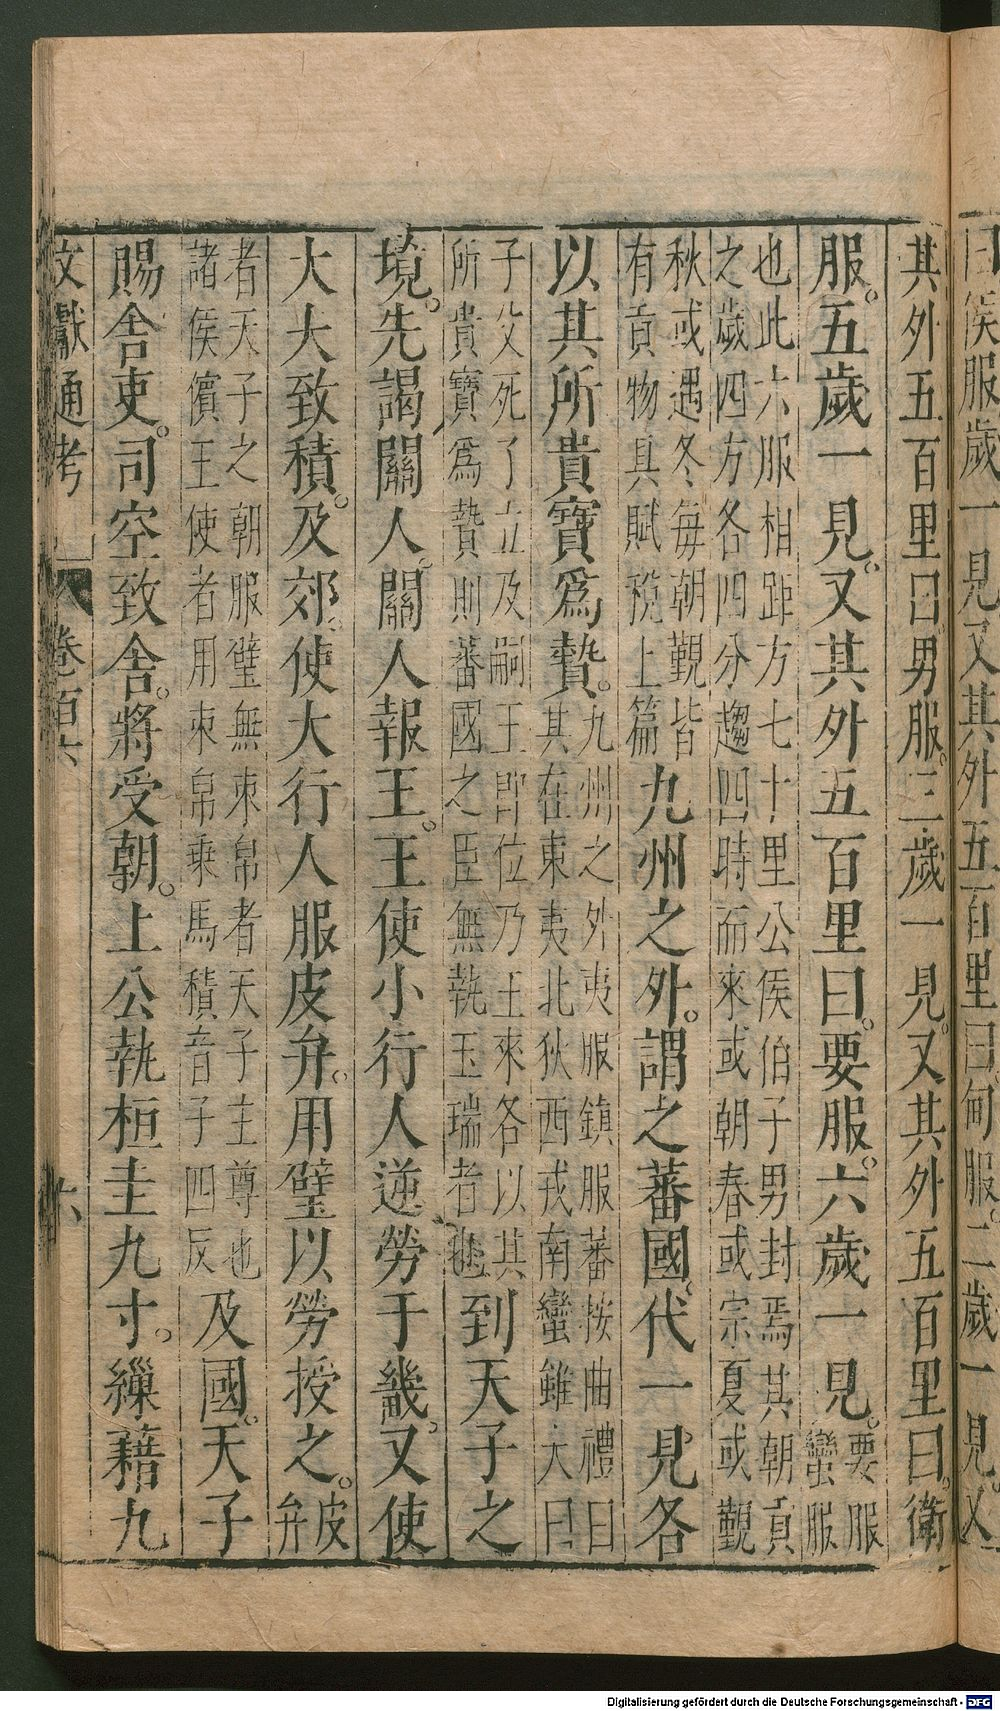 曰侯服歲一見又其外五百里曰甸服二歲一見又
其外五百里曰男服三歲一見又其外五百里曰衛
服五歲一見又其外五百里曰要服六歲一見要服
蠻服
也此六服相距方七十里公侯伯子男封焉其朝貢
之歲四方各四分趨四時而來或朝春或宗夏或覲
秋或遇冬每朝覲皆
有貢物具賦稅上篇
九州之外謂之蕃國代一見各
以其所貴寶爲贄
九州之外夷服鎮服蕃按曲禮曰
其在東夷北狄西戎南蠻雖大曰
子父死子立及嗣王即位乃王來各以其
所貴寶爲贄則蕃國之臣無執玉瑞者也
到天子之
境先謁關人關人報王王使小行人逆勞于畿又使
大夫致積及郊使大行人服皮弁用璧以勞授之
皮
弁
者天子之朝服璧無束帛者天子主尊也
諸侯儐王使者用束帛乘馬積音子四反
及國天子
賜舍吏司空致舍將受朝上公執桓圭九寸繅藉九
文獻通考 卷百六 六
Digitalisierung gefördert durch die Deutsche Forschungsgemeinschaft - DFG